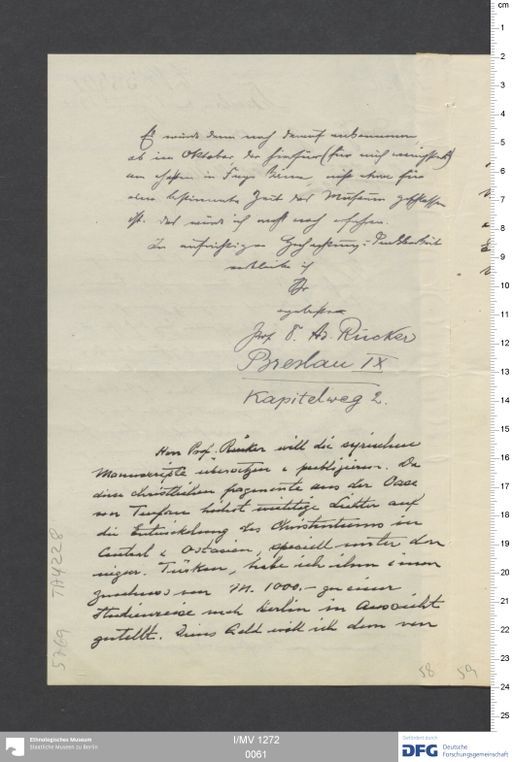 Es würde dann noch darauf ankommen,
ob im Oktober, der hierfür (für mich wenigstens)
am ehesten in Frage käme, nicht etwa für
eine bestimmte Zeit das Museum geschlossen
ist. das würde ich noch erfahren.
In aufrichtiger Hochachtung u. Dankbarkeit
verbleibe ich
Ihr
ergebenster
Prof. Ad. Rücker
Breslau IX
Kapitelweg 2.
Herr Prof. Rücker will die syrischen
Manuscripte übersetzen u publizieren. Da
diese christlichen Fragmente aus der Oase
von Turfan höchst wichtige Lichter auf
die Entwicklung des Christentums in
Central u Ostasien, speziell unter den
uigur. Türken, habe ich ihm einen
Zuschuss von M. 1000.- zu einer
Studienreise nach Berlin in Aussicht
gestellt. Dieses Geld will ich dem von
5769 TA4228
58 59
cm
1
2
3
4
5
6
7
8
9
10
11
12
13
14
15
16
17
18
19
20
21
22
23
24
25
Ethnologisches Museum
Staatliche Museen zu Berlin
I/MV 1272
0061
Gefördert durch
DFG Deutsche
Forschungsgemeinschaft